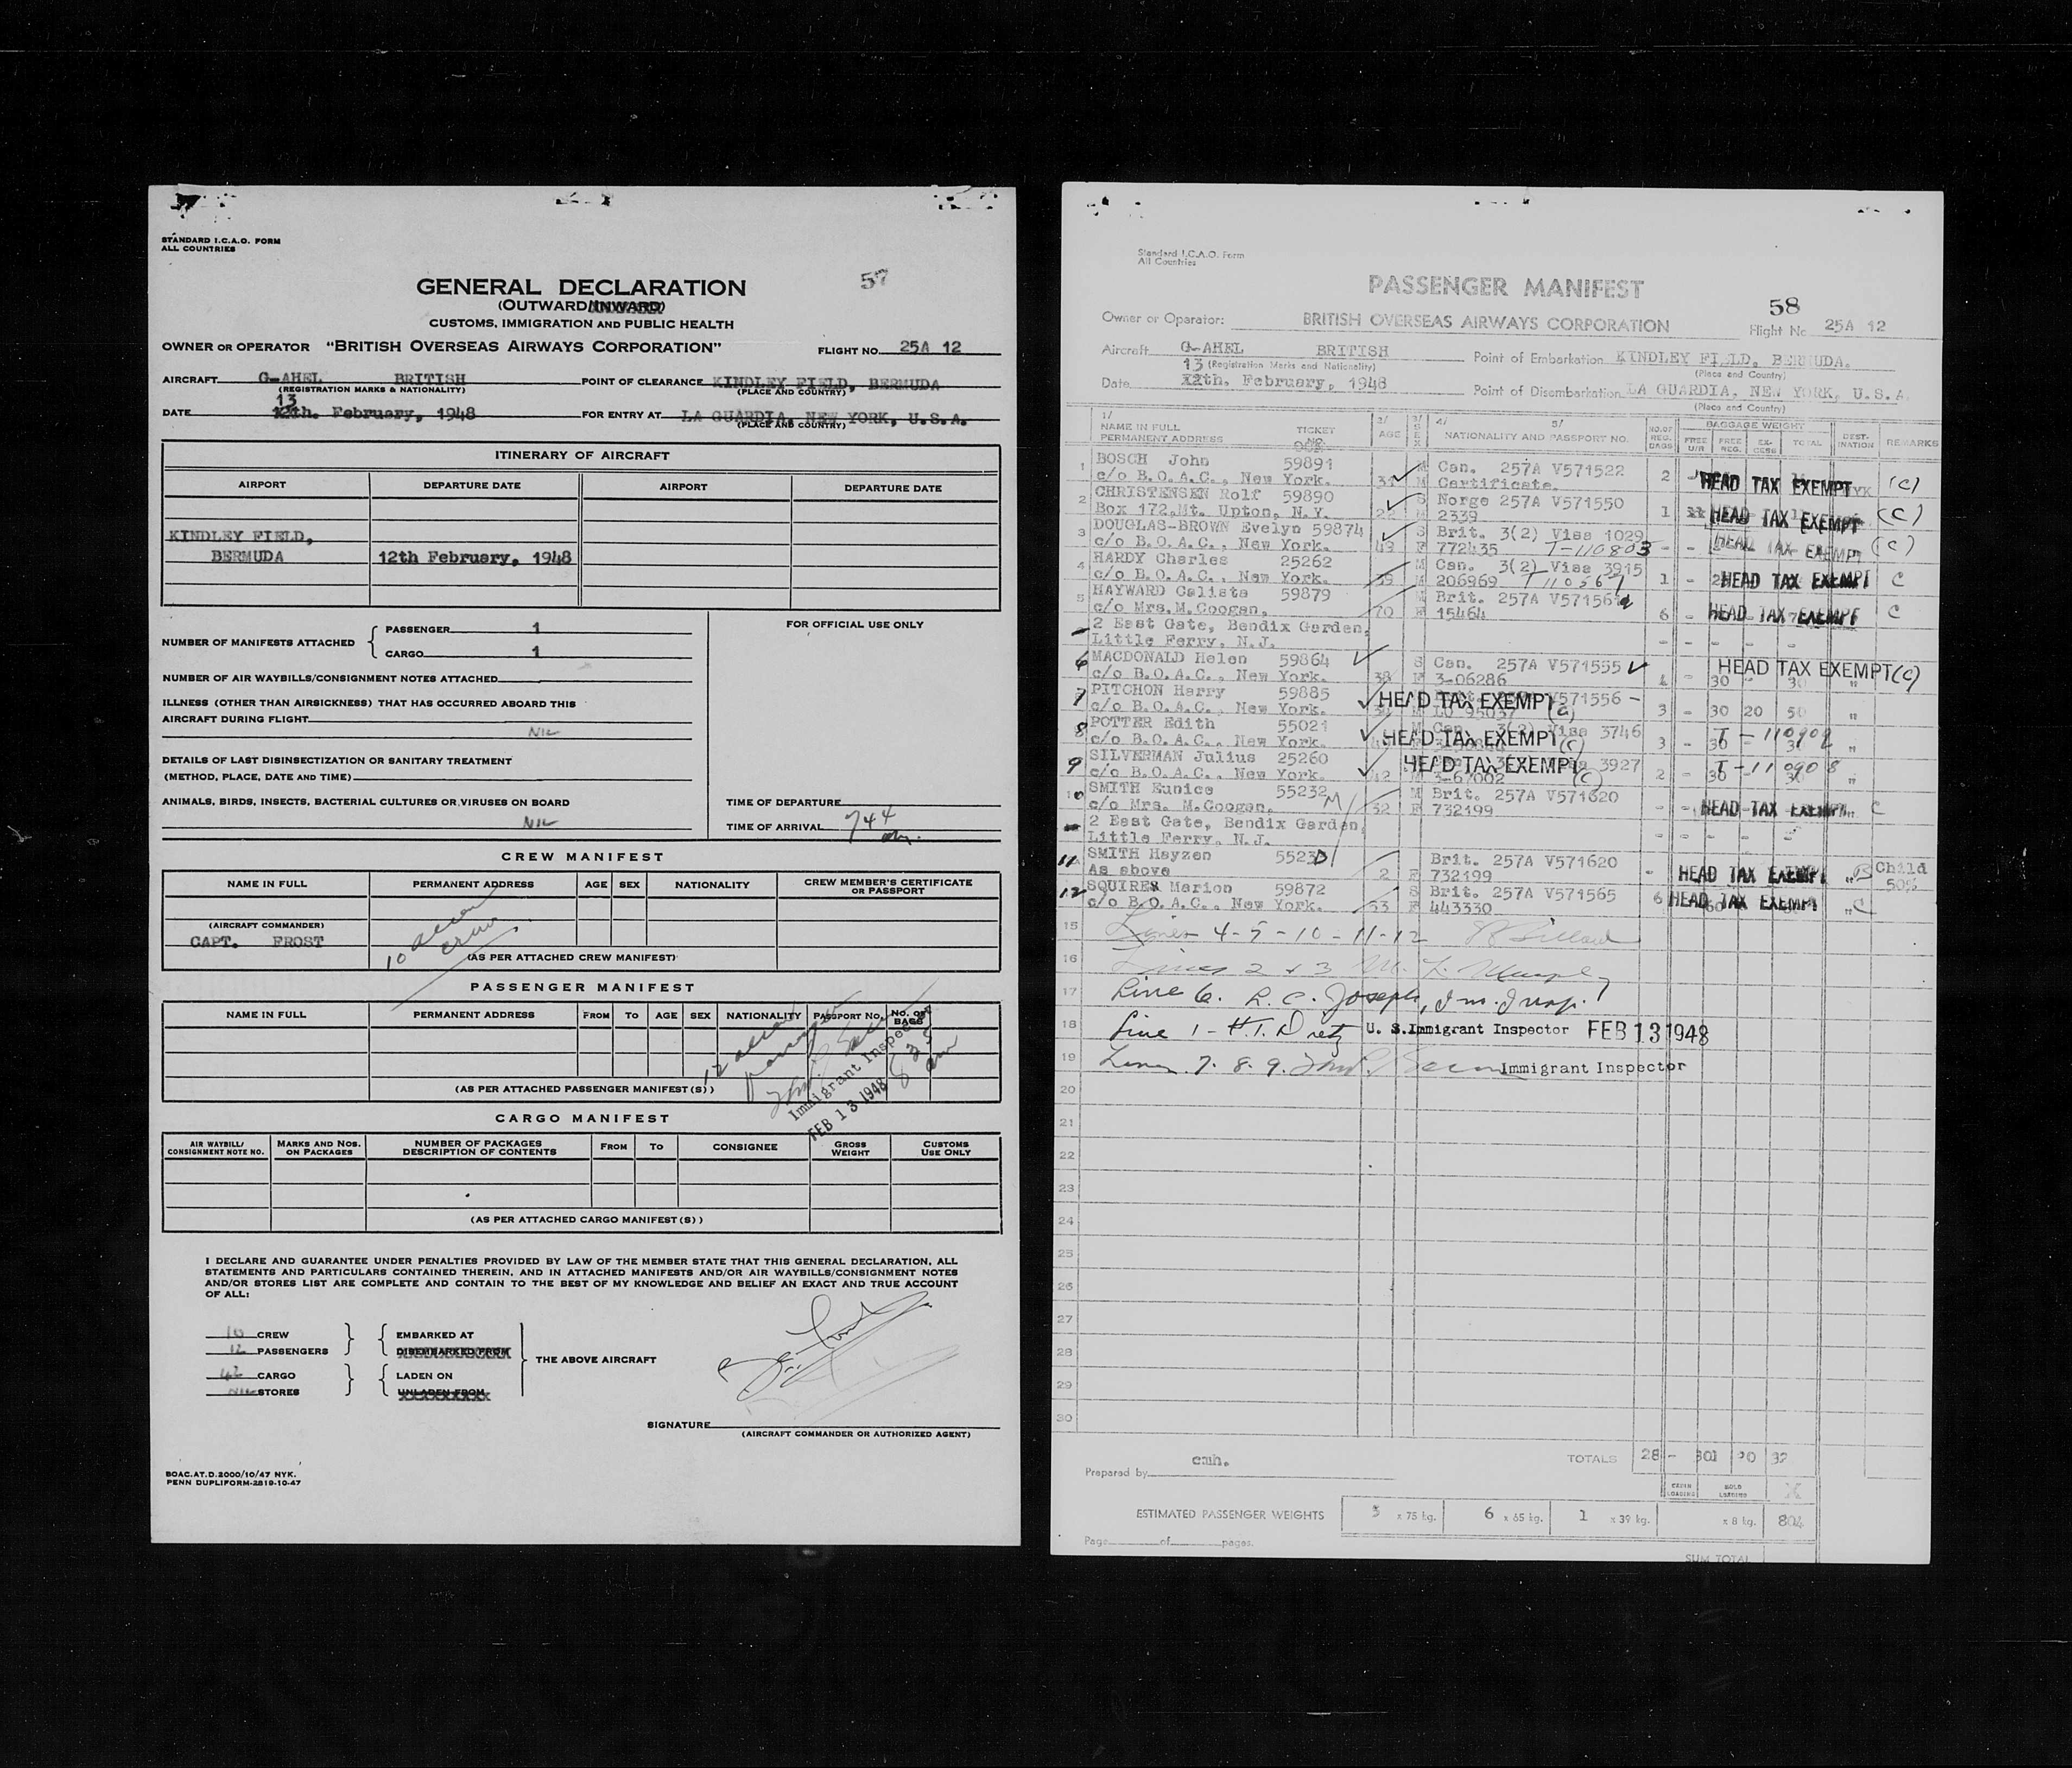 STANDARD I.C.A.O. FORM
ALL COUNTRIES
57
GENERAL DECLARATION
(OUTWARD/INWARD)
CUSTOMS, IMMIGRATION AND PUBLIC HEALTH
OWNER OR OPERATOR "BRITISH OVERSEAS AIRWAYS CORPORATION" FLIGHT NO. 25A 12
AIRCRAFT G-AHEL BRITISH POINT OF CLEARANCE KINDLEY FIELD, BERMUDA
(REGISTRATION MARKS & NATIONALITY) (PLACE AND COUNTRY)
13
DATE 12th. February, 1948 FOR ENTRY AT LA GUARDIA, NEW YORK, U.S.A.
(PLACE AND COUNTRY)
ITINERARY OF AIRCRAFT
AIRPORT DEPARTURE DATE AIRPORT DEPARTURE DATE
KINDLEY FIELD,
BERMUDA 12th February, 1948
NUMBER OF MANIFESTS ATTACHED
PASSENGER 1
CARGO 1
FOR OFFICIAL USE ONLY
NUMBER OF AIR WAYBILLS/CONSIGNMENT NOTES ATTACHED
ILLNESS (OTHER THAN AIRSICKNESS) THAT HAS OCCURRED ABOARD THIS
AIRCRAFT DURING FLIGHT
NIL
DETAILS OF LAST DISINSECTIZATION OR SANITARY TREATMENT
(METHOD, PLACE, DATE AND TIME)
ANIMALS, BIRDS, INSECTS, BACTERIAL CULTURES OR VIRUSES ON BOARD
NIL
TIME OF DEPARTURE
TIME OF ARRIVAL 744 am.
CREW MANIFEST
NAME IN FULL PERMANENT ADDRESS AGE SEX NATIONALITY CREW MEMBER'S CERTIFICATE OR PASSPORT
(AIRCRAFT COMMANDER)
CAPT. FROST
10 alien crew
(AS PER ATTACHED CREW MANIFEST)
PASSENGER MANIFEST
NAME IN FULL PERMANENT ADDRESS FROM TO AGE SEX NATIONALITY PASSPORT NO. NO. OF BAGS
12 alien passengers
Immigrant Inspector
FEB 13 1948
825 am
(AS PER ATTACHED PASSENGER MANIFEST(S))
CARGO MANIFEST
AIR WAYBILL/ CONSIGNMENT NOTE NO. MARKS AND NOS. ON PACKAGES NUMBER OF PACKAGES DESCRIPTION OF CONTENTS FROM TO CONSIGNEE GROSS WEIGHT CUSTOMS USE ONLY
(AS PER ATTACHED CARGO MANIFEST(S))
I DECLARE AND GUARANTEE UNDER PENALTIES PROVIDED BY LAW OF THE MEMBER STATE THAT THIS GENERAL DECLARATION, ALL
STATEMENTS AND PARTICULARS CONTAINED THEREIN, AND IN ATTACHED MANIFESTS AND/OR AIR WAYBILLS/CONSIGNMENT NOTES
AND/OR STORES LIST ARE COMPLETE AND CONTAIN TO THE BEST OF MY KNOWLEDGE AND BELIEF AN EXACT AND TRUE ACCOUNT
OF ALL:
10 CREW EMBARKED AT
12 PASSENGERS DISEMBARKED FROM
THE ABOVE AIRCRAFT
CARGO LADEN ON
NIL STORES UNLADEN FROM
SIGNATURE
(AIRCRAFT COMMANDER OR AUTHORIZED AGENT)
BOAC.AT.D.2000/10/47 NYK.
PENN DUPLIFORM-2819-10-47
Standard I.C.A.O. Form
All Countries
PASSENGER MANIFEST
58
Owner or Operator: BRITISH OVERSEAS AIRWAYS CORPORATION Flight No 25A 12
Aircraft G-AHEL BRITISH Point of Embarkation KINDLEY FIELD, BERMUDA.
13 (Registration Marks and Nationality) (Place and Country)
Date 12th. February, 1948 Point of Disembarkation LA GUARDIA, NEW YORK, U.S.A.
(Place and Country)
1/ 2/ 3/ 4/ 5/
NAME IN FULL TICKET NO. AGE SEX NATIONALITY AND PASSPORT NO. NO. OF REG. BAGS BAGGAGE WEIGHT DESTINATION REMARKS
PERMANENT ADDRESS FREE U/R FREE REG. EXCESS TOTAL
1 BOSCH John 59891 M Can. 257A V571522
c/o B.O.A.C., New York. 31 M Certificate. 2 HEAD TAX EXEMPT (C)
2 CHRISTENSEN Rolf 59890 S Norge 257A V571550
Box 172, Mt. Upton, N.Y. 22 M 2339 1 HEAD TAX EXEMPT (C)
3 DOUGLAS-BROWN Evelyn 59874 S Brit. 3(2) Visa 1029
c/o B.O.A.C., New York. 49 F 772435 T-110803 - - HEAD TAX EXEMPT (C)
4 HARDY Charles 25262 M Can. 3(2) Visa 3915
c/o B.O.A.C., New York. 39 M 206969 1 - HEAD TAX EXEMPT C
5 HAYWARD Calista 59879 M Brit. 257A
c/o Mrs. M. Coogan, 70 F 15464 6 - HEAD TAX EXEMPT C
2 East Gate, Bendix Garden,
Little Ferry, N.J.
6 MACDONALD Helen 59864 S Can. 257A V571555 HEAD TAX EXEMPT (C)
c/o B.O.A.C., New York. 38 F 3-06286 4 - 30 - 30 "
7 PITCHON Harry 59885 HEAD TAX EXEMPT V571556
c/o B.O.A.C., New York. 3 - 30 20 50 "
8 POTTER Edith 55021 M Can. 3(2) Visa 3746
c/o B.O.A.C., New York. HEAD TAX EXEMPT (C) 3 - 30 "
9 SILVERMAN Julius 25260 HEAD TAX EXEMPT 3927 T-110908
c/o B.O.A.C., New York. 42 3-67002 (C) 2 - 30 30 "
10 SMITH Eunice 55232 M Brit. 257A V571620
c/o Mrs. M. Coogan, 32 F 732199 - - HEAD TAX EXEMPT " C
2 East Gate, Bendix Garden,
Little Ferry, N.J.
11 SMITH Hayzen Brit. 257A V571620
As above 2 F 732199 - HEAD TAX EXEMPT " Child 50%
12 SQUIRES Marion 59872 S Brit. 257A V571565
c/o B.O.A.C., New York. 53 F 443330 6 HEAD TAX EXEMPT " C
15 Lines 4-5-10-11-12
16 Lines 2 & 3
17 Line 6. L. C. Joseph, Im. Insp.
18 Line 1 - H.T. Dietz U. S. Immigrant Inspector FEB 13 1948
19 Lines 7. 8. 9. Immigrant Inspector
20
21
22
23
24
25
26
27
28
29
30
TOTALS 28 - 301 20 32
Prepared by emh.
CABIN LOADING HOLD LOADING
ESTIMATED PASSENGER WEIGHTS 5 x 75 kg. 6 x 65 kg. 1 x 39 kg. x 8 kg. 804
Page of pages.
SUM TOTAL